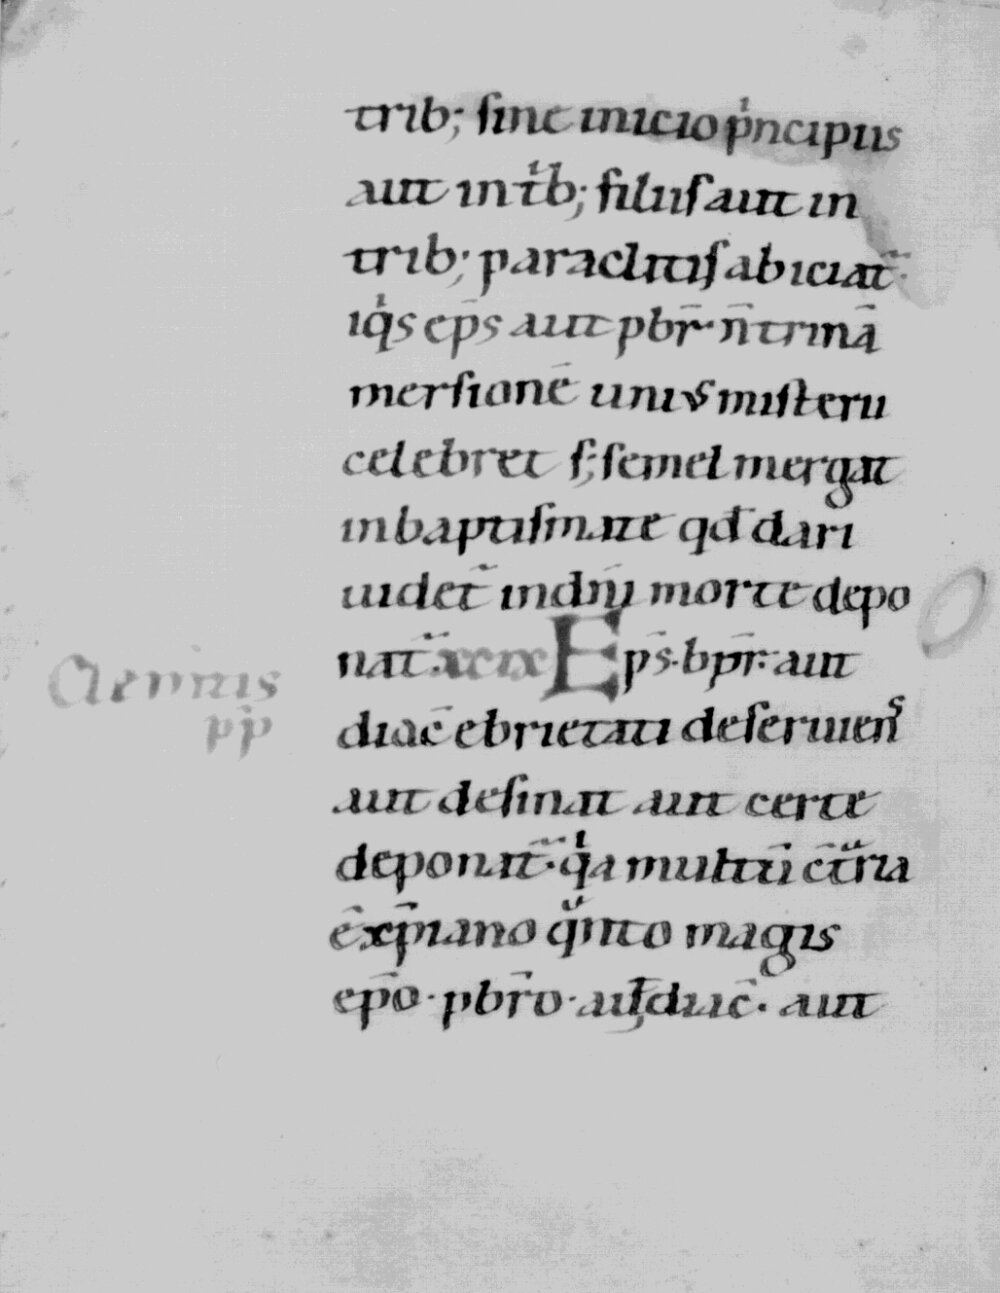 trib; sine inicio p̍ncipiis
aut in tͥb; filiis aut in
trib; paraclitis abiciat̃·
iq̍s ep̄s aut pbr̄· n̄ trinā
mersionē uniꝰ misterii
celebret s; semel mergat
in baptismate qđ dari
uidet̃ in dn̄i morte depo
nat̃· xcix Ep̄s· bpr̄· aut
diac̄ ebrietati deseruiens
aut desinat aut certe
deponat̃· q̍a multū c̄tͣria
ē xp̄iano qͣnto magis
ep̄o · pbr̄o · aut̄ diac̄ · aut
Clemens
pp̄